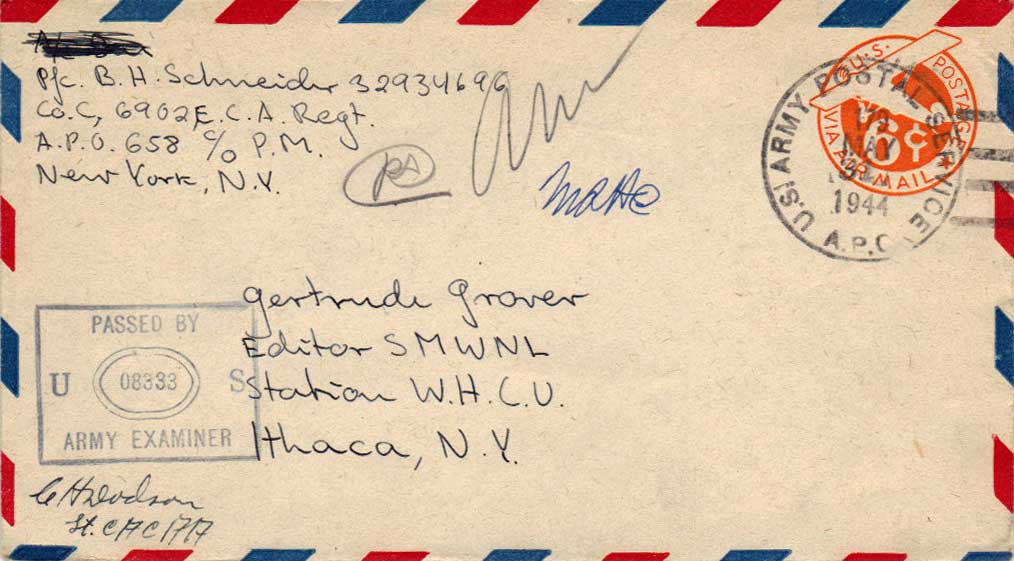 Pfc. B. H. Schneider 32934696
Co. C, 6902 E. C. A. Regt.
A.P.O. 658 c/o P.M.
New York, N.Y.
U.S. POSTAGE
6¢
VIA AIR MAIL
U.S. ARMY POSTAL SERVICE
A.P.O.
MAY
1944
Gertrude Grover
Editor SMWNL
Station W.H.C.U.
Ithaca, N.Y.
PASSED BY
U 08333 S
ARMY EXAMINER
C H Dodson